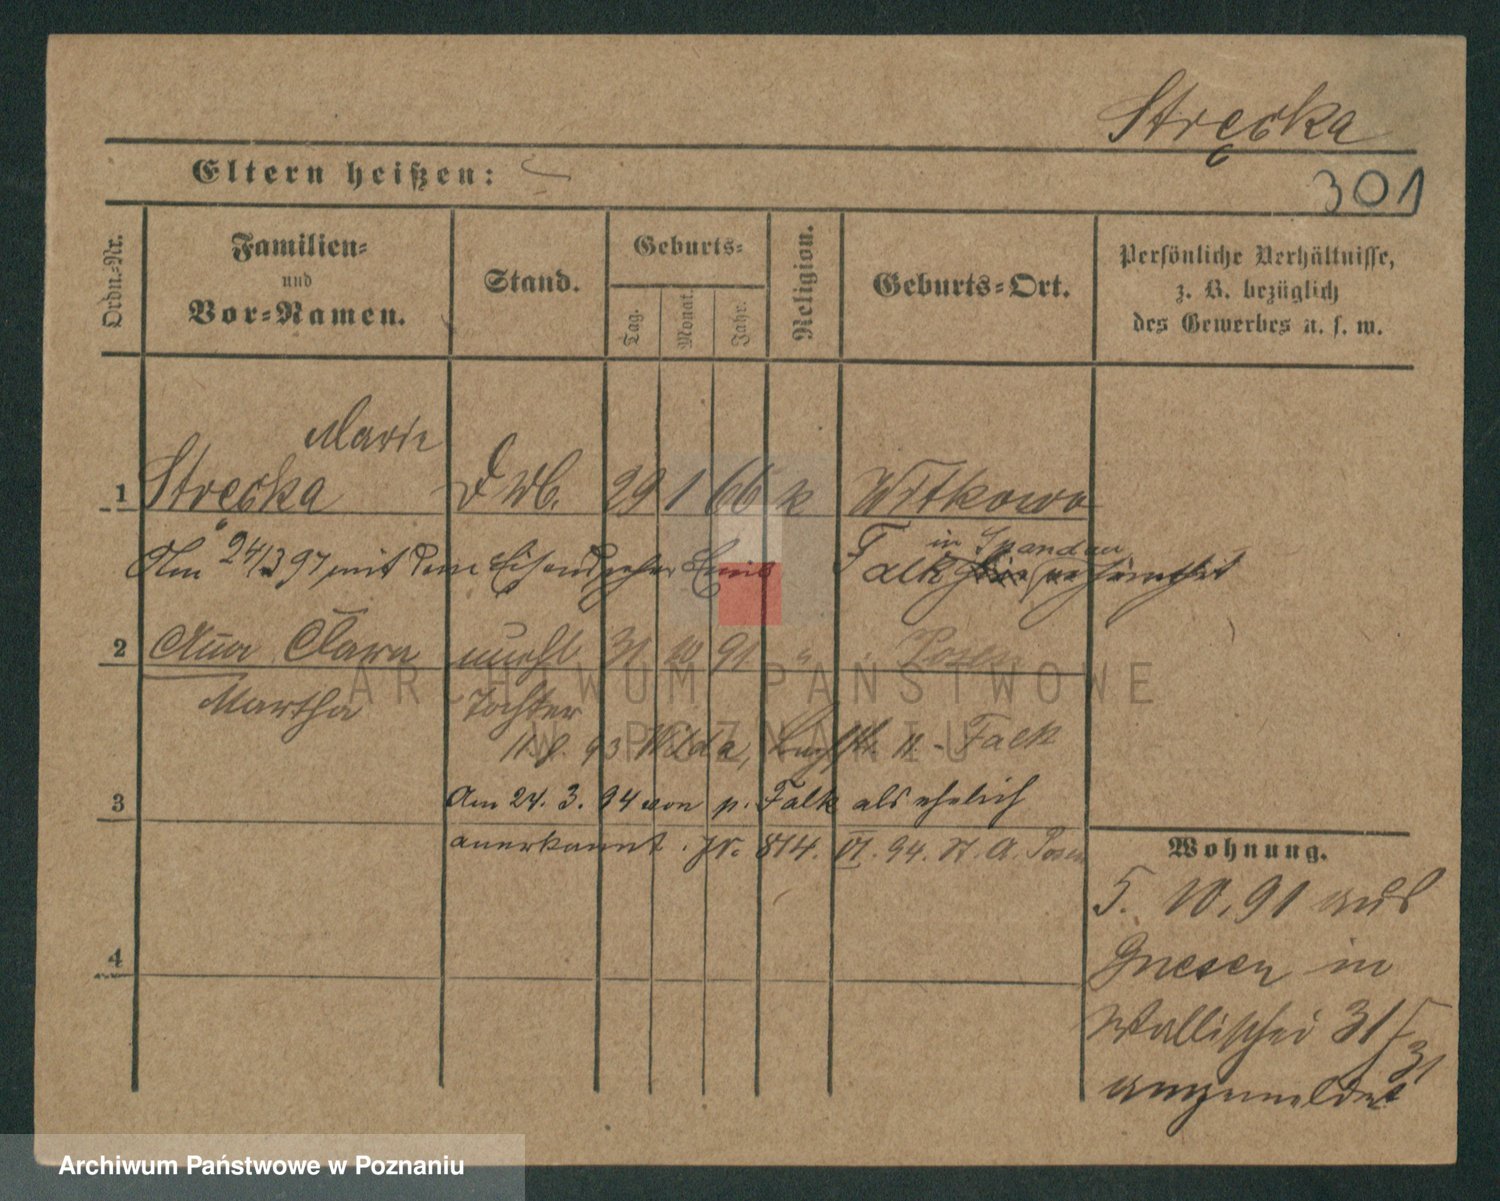 Stręcka
Eltern heißen:
301
Ordn.-Nr.
Familien-
und
Vor-Namen.
Stand.
Geburts-
Tag.
Monat.
Jahr.
Religion.
Geburts-Ort.
Persönliche Verhältnisse,
z. B. bezüglich
des Gewerbes u. s. w.
Marie
1 Strecka 29 1 66 k Witkowo
in Spandau
Am 24/3 97 mit dem Emil Falk
2 Clara unehl 31 10 91 " Posen
Martha Tochter
93 Wilda, Falk
3 Am 24. 3. 94 von p. Falk als ehelich
anerkannt. Nr. 814. VI. 94. St. A. Posen
4
Wohnung.
5. 10. 91 aus
Gnesen in
Wallischei 31
angemeldet
ARCHIWUM PAŃSTWOWE
W POZNANIU
Archiwum Państwowe w Poznaniu